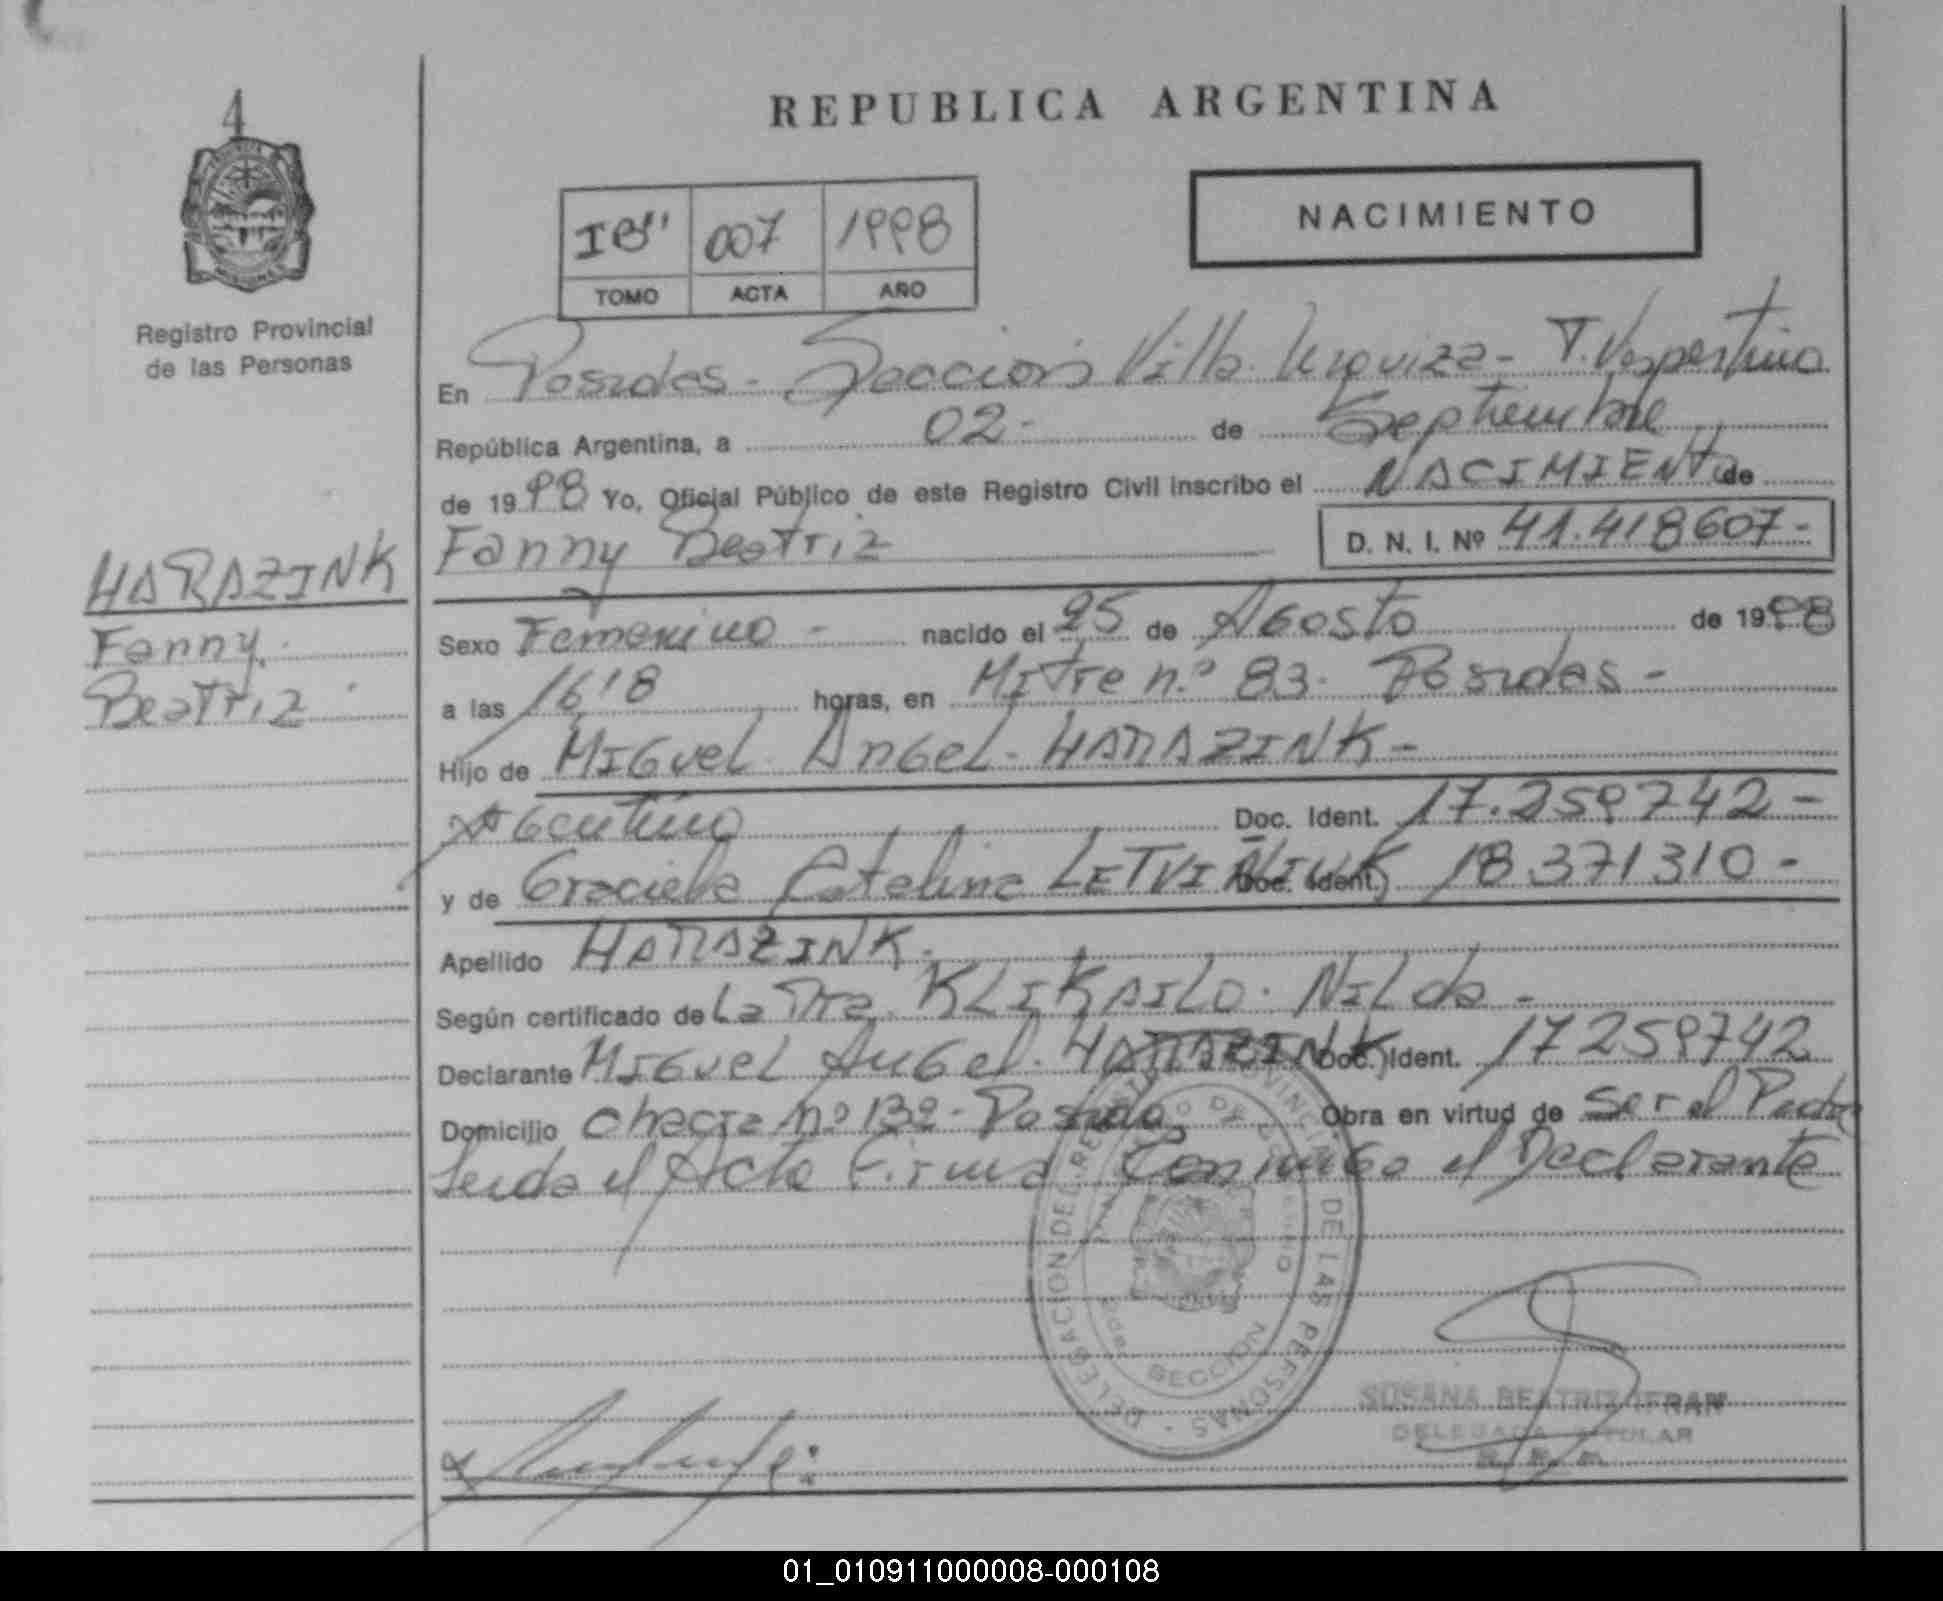 4
REPUBLICA ARGENTINA
NACIMIENTO
IB" 007 1998
TOMO ACTA AÑO
Registro Provincial
de las Personas
En Posadas - Sección Villa Urquiza - T. Vespertino
República Argentina, a 02 - de Septiembre
de 1998 Yo, Oficial Público de este Registro Civil inscribo el NACIMIENTO de
Fanny Beatriz D. N. I. Nº 41.418607-
HARAZINK
Fanny
Beatriz
Sexo Femenino - nacido el 25 de Agosto de 1998
a las 16'18 horas, en Mitre n.º 83. Posadas -
Hijo de Miguel Angel HARAZINK -
Argentino Doc. Ident. 17.259742 -
y de Graciela Catalina LETVINIUK Doc. Ident. 18371310 -
Apellido HARAZINK.
Según certificado de La Dra. KLIKAILO. Nilda -
Declarante Miguel Angel HARAZINK Doc. Ident. 17259742
Domicilio chacra nº 132 - Posadas Obra en virtud de ser el Padre
Leida el Acta Firma Conmigo el Declarante
DELEGACION DEL REGISTRO PROVINCIAL DE LAS PERSONAS -
SECCION
SUSANA BEATRIZ IFRAN
DELEGADA TITULAR
01_010911000008-000108